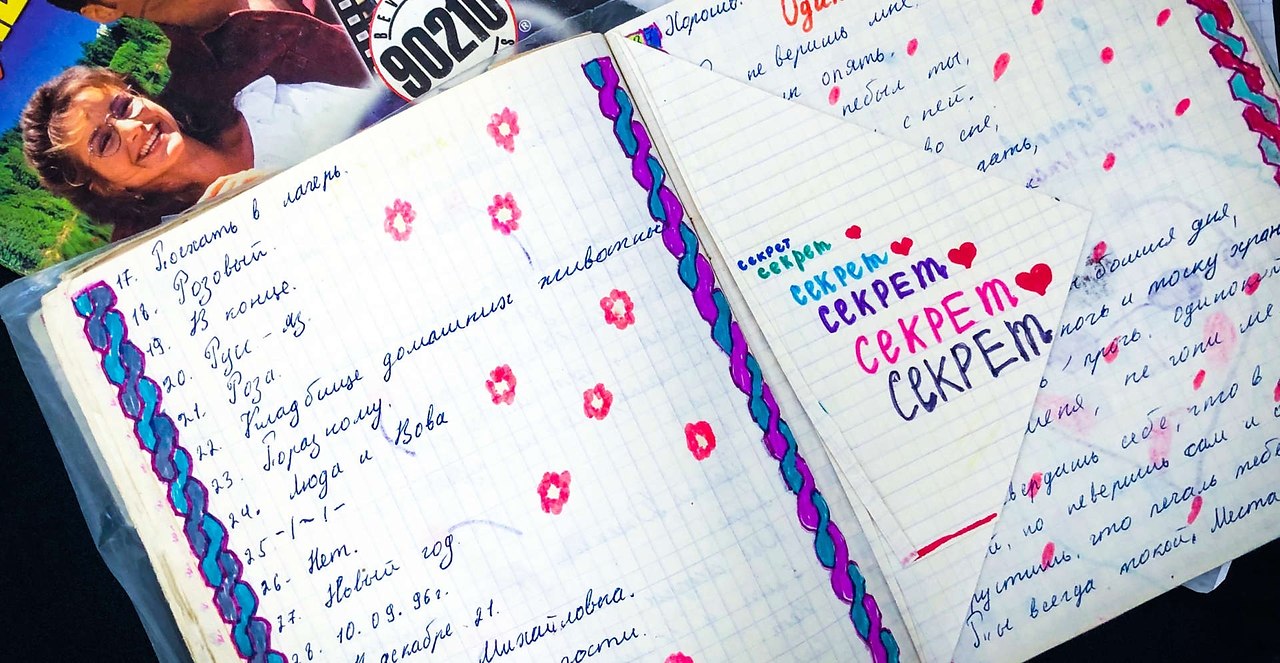 BEV
90210
S
®
17. Поехать в лагерь.
18. Розовый.
19. В конце.
20. Русс-яз.
21. Роза.
22. Кладбище домашних животных
23. Горазному.
24. Люда и Вова
25 -/~/-
26- Нет.
27. Новый год.
28. 10.09.96г.
декабре. 21.
Михайловна.
37
Хорошо.
Один
не веришь мне,
опять.
небыл ты,
с ней.
во сне,
секрет
секрет
секрет
СЕКРЕТ
СЕКРЕТ
СЕКРЕТ
дня,
ночь и тоску хран
, прочь. одинокий
меня, не гони ме
вердишь себе, что в
й, но неверишь сам и с
пустишь, что печаль тебе
Ты всегда такой, Места